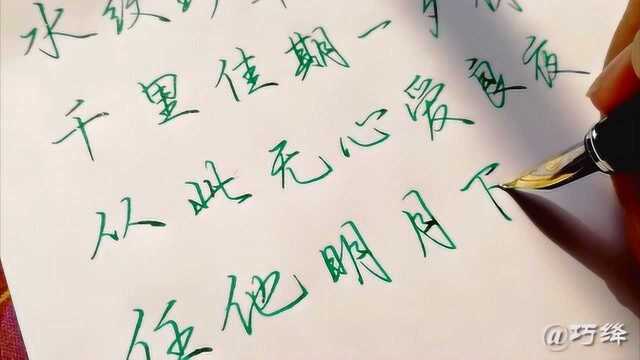 水纹
千里佳期一
从此无心爱良夜
任他明月下
@巧绛